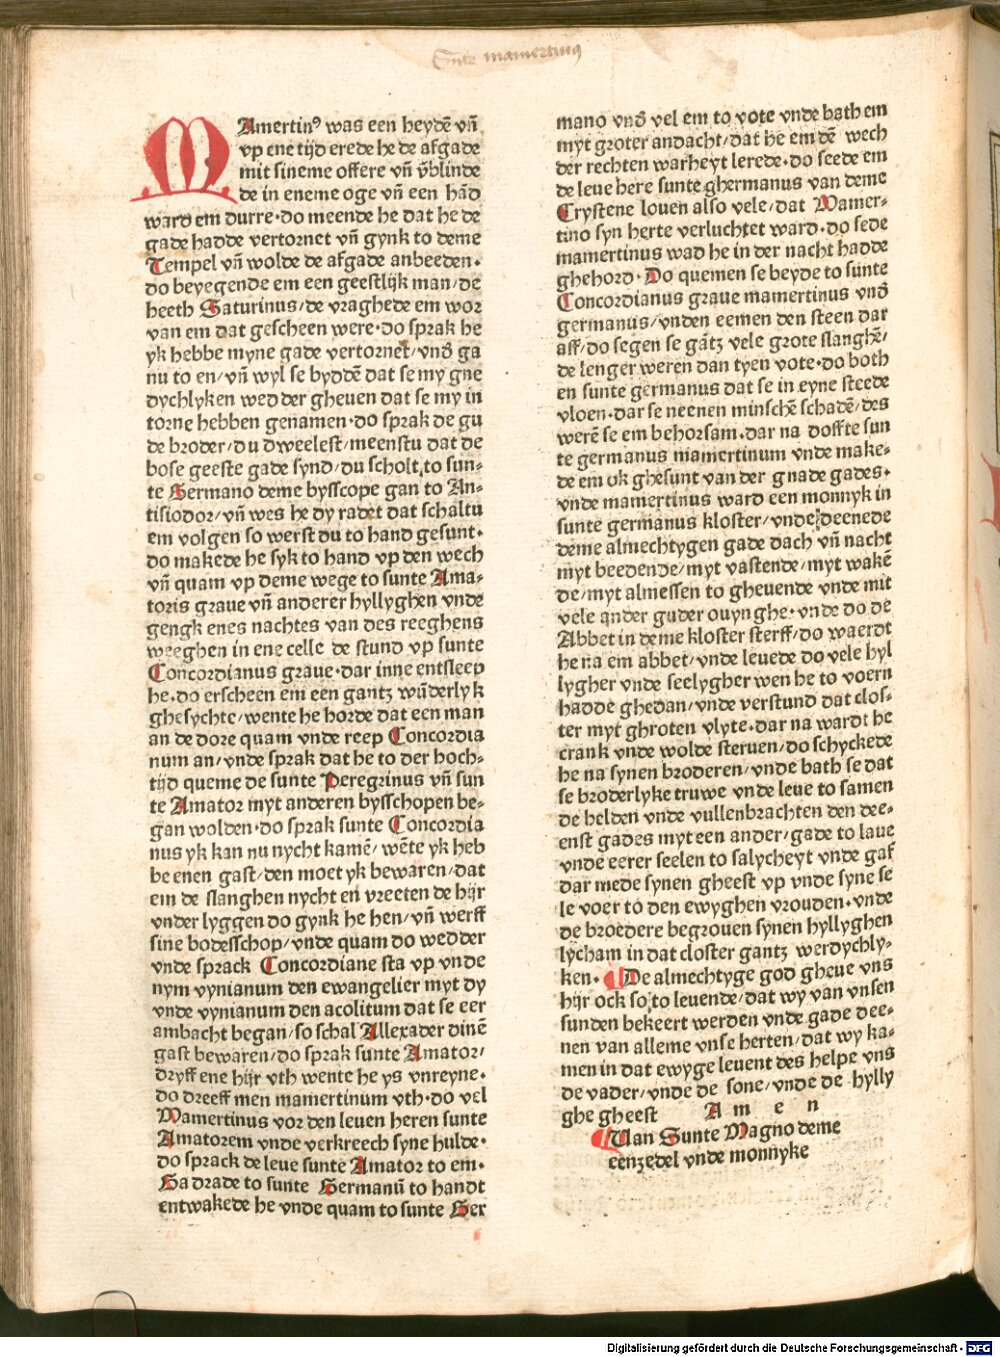 Sute mamertinꝰ
MAmertinꝰ was een heydē vn̄
vp ene tijd erede he de afgade
mit sineme offere vn̄ v̄blinde
de in eneme oge vn̄ een hād
ward em durre·do meende he dat he de
gade hadde vertornet vn̄ gynk to deme
Tempel vn̄ wolde de afgade anbeeden·
do beyegende em een geestlijk man/de
heeth Saturinus/de vraghede em wor
van em dat gescheen were·do sprak he
yk hebbe myne gade vertornet/vnd̄ ga
nu to en/vn̄ wyl se byddē dat se my gne
dychlyken wedder gheuen dat se my in
torne hebben genamen·do sprak de gu
de broder/du dweelest/meenstu dat de
bose geeste gade synd/du scholt to sun-
te Germano deme bysscope gan to An-
tisiodor/vn̄ wes he dy radet dat schaltu
em volgen so werst du to hand gesunt·
do makede he syk to hand vp den wech
vn̄ quam vp deme wege to sunte Ama-
toris graue vn̄ anderer hyllyghen vnde
gengk enes nachtes van des reeghens
weeghen in ene celle de stund vp sunte
Concordianus graue·dar inne entsleep
he·do erscheen em een gantz wūderlyk
ghesychte/wente he horde dat een man
an de dore quam vnde reep Concordia
num an/vnde sprak dat he to der hoch-
tijd queme de sunte Peregrinus vn̄ sun
te Amator myt anderen bysschopen be-
gan wolden·do sprak sunte Concordia
nus yk kan nu nycht kamē/wēte yk heb
be enen gast/den moet yk bewaren/dat
em de slanghen nycht en vreeten de hijr
vnder lyggen do gynk he hen/vn̄ werff
sine bodesschop/vnde quam do wedder
vnde sprack Concordiane sta vp vnde
nym vynianum den ewangelier myt dy
vnde vynianum den acolitum dat se eer
ambacht began/so schal Allexader dinē
gast bewaren/do sprak sunte Amator/
dryff ene hijr vth wente he ys vnreyne·
do dreeff men mamertinum vth·do vel
Mamertinus vor den leuen heren sunte
Amatorem vnde verkreech syne hulde·
do sprack de leue sunte Amator to em·
Ga drade to sunte Germanū to handt
entwakede he vnde quam to sunte Ger
mano vnd̄ vel em to vote vnde bath em
myt groter andacht/dat he em dē wech
der rechten warheyt lerede·do seede em
de leue here sunte ghermanus van deme
Crystene louen also vele/dat Mamer-
tino syn herte verluchtet ward·do sede
mamertinus wad he in der nacht hadde
ghehord·Do quemen se beyde to sunte
Concordianus graue mamertinus vnd̄
germanus/vnden eemen den steen dar
aff/do segen se gātz vele grote slanghē/
de lenger weren dan tyen vote·do both
en sunte germanus dat se in eyne steede
vloen·dar se neenen minschē schadē/des
werē se em behorsam·dar na doffte sun
te germanus mamertinum vnde make-
de em ok ghesunt van der gnade gades·
vnde mamertinus ward een monnyk in
sunte germanus kloster/vnde deenede
deme almechtygen gade dach vn̄ nacht
myt beedende/myt vastende/myt wakē
de/myt almessen to gheuende vnde mit
vele ander guder ouynghe·vnde do de
Abbet in deme kloster sterff/do waerdt
he na em abbet/vnde leuede do vele hyl
lygher vnde seelygher wen he to voern
hadde ghedan/vnde verstund dat clos-
ter myt ghroten vlyte·dar na wardt he
crank vnde wolde steruen/do schyckede
he na synen broderen/vnde bath se dat
se broderlyke truwe vnde leue to samen
de helden vnde vullenbrachten den dee-
enst gades myt een ander/gade to laue
vnde eerer seelen to salycheyt vnde gaf
dar mede synen gheest vp vnde syne se
le voer to den ewyghen vrouden·vnde
de broedere begrouen synen hyllyghen
lycham in dat closter gantz werdychly-
ken· ¶De almechtyge god gheue vns
hijr ock so to leuende/dat wy van vnsen
sunden bekeert werden vnde gade dee-
nen van alleme vnse herten/dat wy ka-
men in dat ewyge leuent des helpe vns
de vader/vnde de sone/vnde de hylly
ghe gheest A m e n
¶Uan Sunte Magno deme
eenzedel vnde monnyke
Digitalisierung gefördert durch die Deutsche Forschungsgemeinschaft - DFG